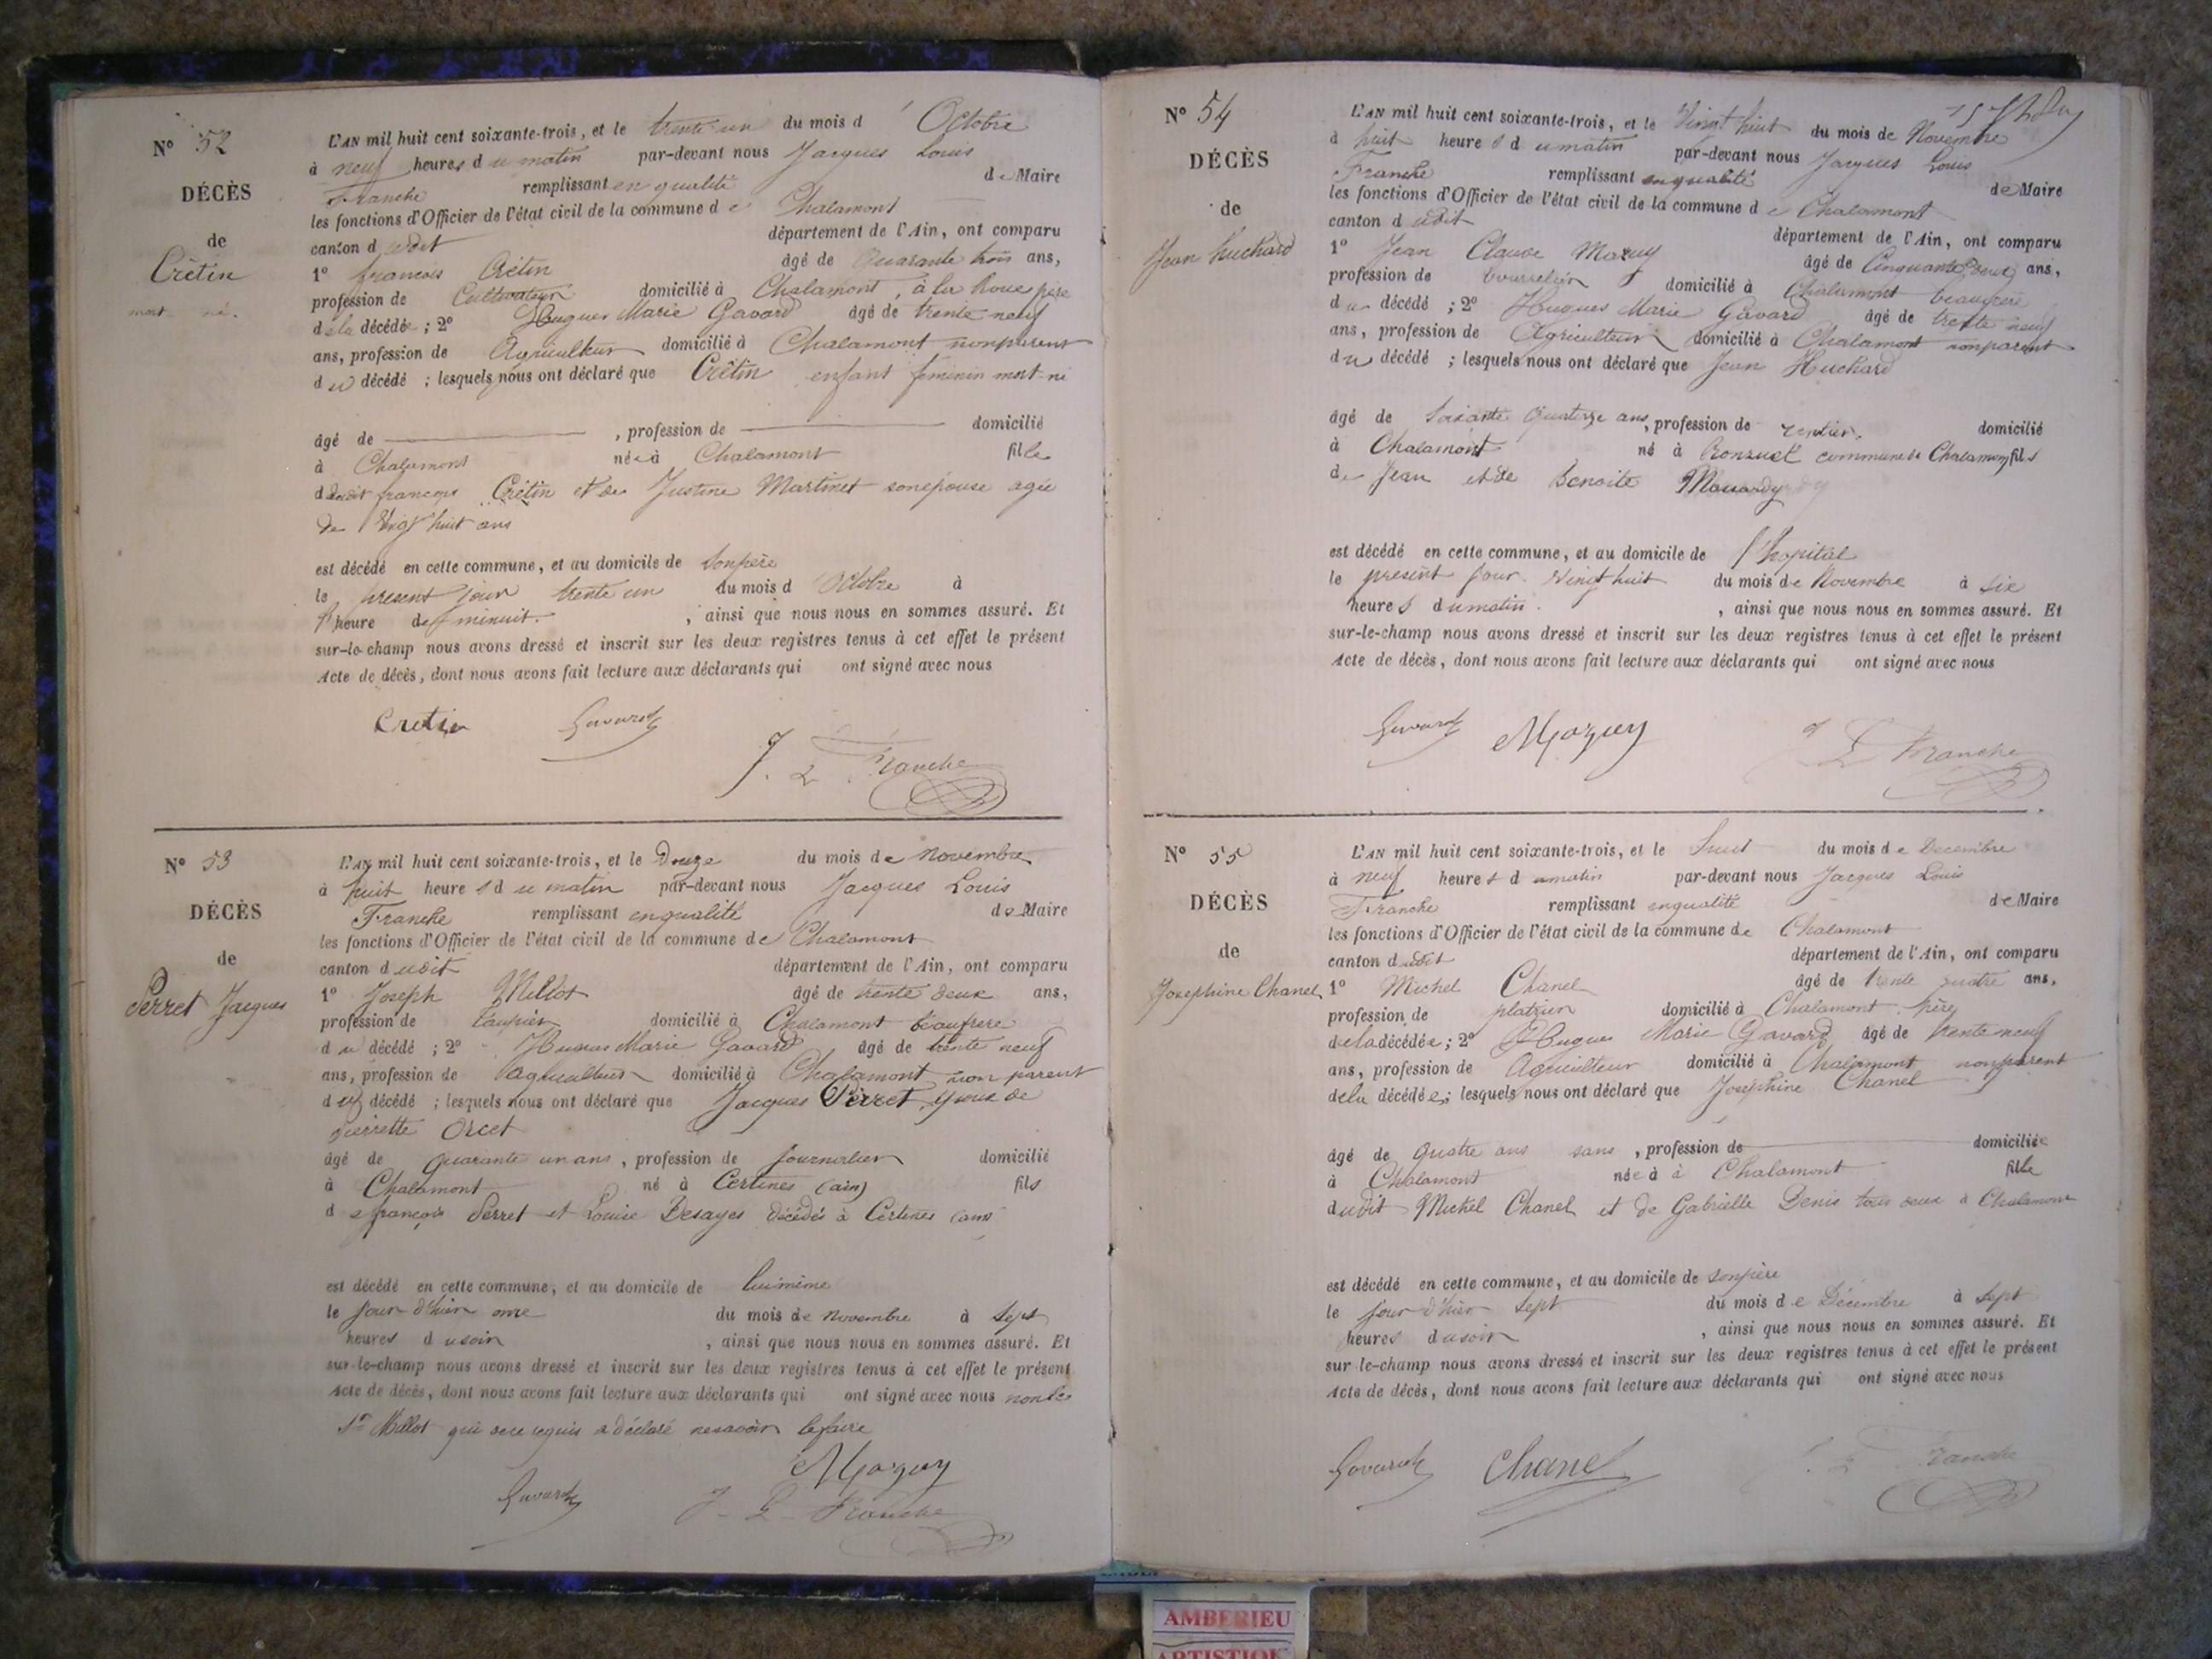 N° 52
DÉCÈS
de
Crétin
mort né.
L'AN mil huit cent soixante-trois, et le trente un du mois d' Octobre
à neuf heures du matin par-devant nous Jacques Louis
Franche remplissant en qualité de Maire
les fonctions d'Officier de l'état civil de la commune de Chalamont
canton dudit département de l'Ain, ont comparu
1° francois Crétin âgé de Quarante trois ans,
profession de Cultivateur domicilié à Chalamont, à la Roue père
dela décédée ; 2° Hugues Marie Gavard âgé de trente neuf
ans, profession de Agriculteur domicilié à Chalamont non parent
du décédé ; lesquels nous ont déclaré que Crétin enfant féminin mort-né
âgé de , profession de domicilié
à Chalamont née à Chalamont fille
dudit françois Crétin et de Justine Martinet son épouse agée
de Vingt huit ans
est décédé en cette commune, et au domicile de son père
le présent jour trente un du mois d' Octobre à
l'heure de minuit. , ainsi que nous nous en sommes assuré. Et
sur-le-champ nous avons dressé et inscrit sur les deux registres tenus à cet effet le présent
Acte de décès, dont nous avons fait lecture aux déclarants qui ont signé avec nous
Cretin Gavard
J. L. Franche
N° 53
DÉCÈS
de
Perret Jacques
L'AN mil huit cent soixante-trois, et le Douze du mois de Novembre
à huit heures du matin par-devant nous Jacques Louis
Franche remplissant en qualité de Maire
les fonctions d'Officier de l'état civil de la commune de Chalamont
canton dudit département de l'Ain, ont comparu
1° Joseph Millot âgé de trente deux ans,
profession de taupier domicilié à Chalamont beaufrere
du décédé ; 2° Hugues Marie Gavard âgé de trente neuf
ans, profession de agriculteur domicilié à Chalamont non parent
du décédé ; lesquels nous ont déclaré que Jacques Perret époux de
pierrette Orcet
âgé de quarante un ans, profession de Journalier domicilié
à Chalamont né à Certines (ain) fils
de françois Perret et Louise Desayes décédés à Certines (ain)
est décédé en cette commune, et au domicile de lui même
le jour d'hier onze du mois de Novembre à Sept
heures du soir , ainsi que nous nous en sommes assuré. Et
sur-le-champ nous avons dressé et inscrit sur les deux registres tenus à cet effet le présent
Acte de décès, dont nous avons fait lecture aux déclarants qui ont signé avec nous non le
Sr Millot qui de ce requis a déclaré ne savoir le faire
Mazuy
Gavard J. L. Franche
N° 54
DÉCÈS
de
Jean huchard
L'AN mil huit cent soixante-trois, et le Vingt huit du mois de Novembre
à huit heures du matin par-devant nous Jacques Louis
Franche remplissant en qualité de Maire
les fonctions d'Officier de l'état civil de la commune de Chalamont
canton dudit département de l'Ain, ont comparu
1° Jean Claude Mazuy âgé de Cinquante deux ans,
profession de bourrelier domicilié à Chalamont beaufrere
du décédé ; 2° Hugues Marie Gavard âgé de trente neuf
ans, profession de Agriculteur domicilié à Chalamont non parent
du décédé ; lesquels nous ont déclaré que Jean Huchard
âgé de Soixante Quatorze ans, profession de rentier. domicilié
à Chalamont né à Ronzuel commune de Chalamont fils
de Jean et de Benoite
est décédé en cette commune, et au domicile de l'hopital
le présent jour Vingt huit du mois de Novembre à Six
heures du matin. , ainsi que nous nous en sommes assuré. Et
sur-le-champ nous avons dressé et inscrit sur les deux registres tenus à cet effet le présent
Acte de décès, dont nous avons fait lecture aux déclarants qui ont signé avec nous
Gavard Mazuy J L Franche
N° 55
DÉCÈS
de
Josephine Chanel
L'AN mil huit cent soixante-trois, et le huit du mois de Decembre
à neuf heures du matin par-devant nous Jacques Louis
Franche remplissant en qualité de Maire
les fonctions d'Officier de l'état civil de la commune de Chalamont
canton dudit département de l'Ain, ont comparu
1° Michel Chanel âgé de trente quatre ans,
profession de platrier domicilié à Chalamont père
dela décédée ; 2° Hugues Marie Gavard âgé de trente neuf
ans, profession de Agriculteur domicilié à Chalamont non parent
dela décédée ; lesquels nous ont déclaré que Josephine Chanel
âgé de quatre ans sans , profession de domiciliée
à Chalamont née à à Chalamont fille
dudit Michel Chanel et de Gabrielle Denis tous deux à Chalamont
est décédé en cette commune, et au domicile de son père
le jour d'hier Sept du mois de Décembre à Sept
heures du soir , ainsi que nous nous en sommes assuré. Et
sur-le-champ nous avons dressé et inscrit sur les deux registres tenus à cet effet le présent
Acte de décès, dont nous avons fait lecture aux déclarants qui ont signé avec nous
Gavard Chanel J. L. Franche
AMBERIEU